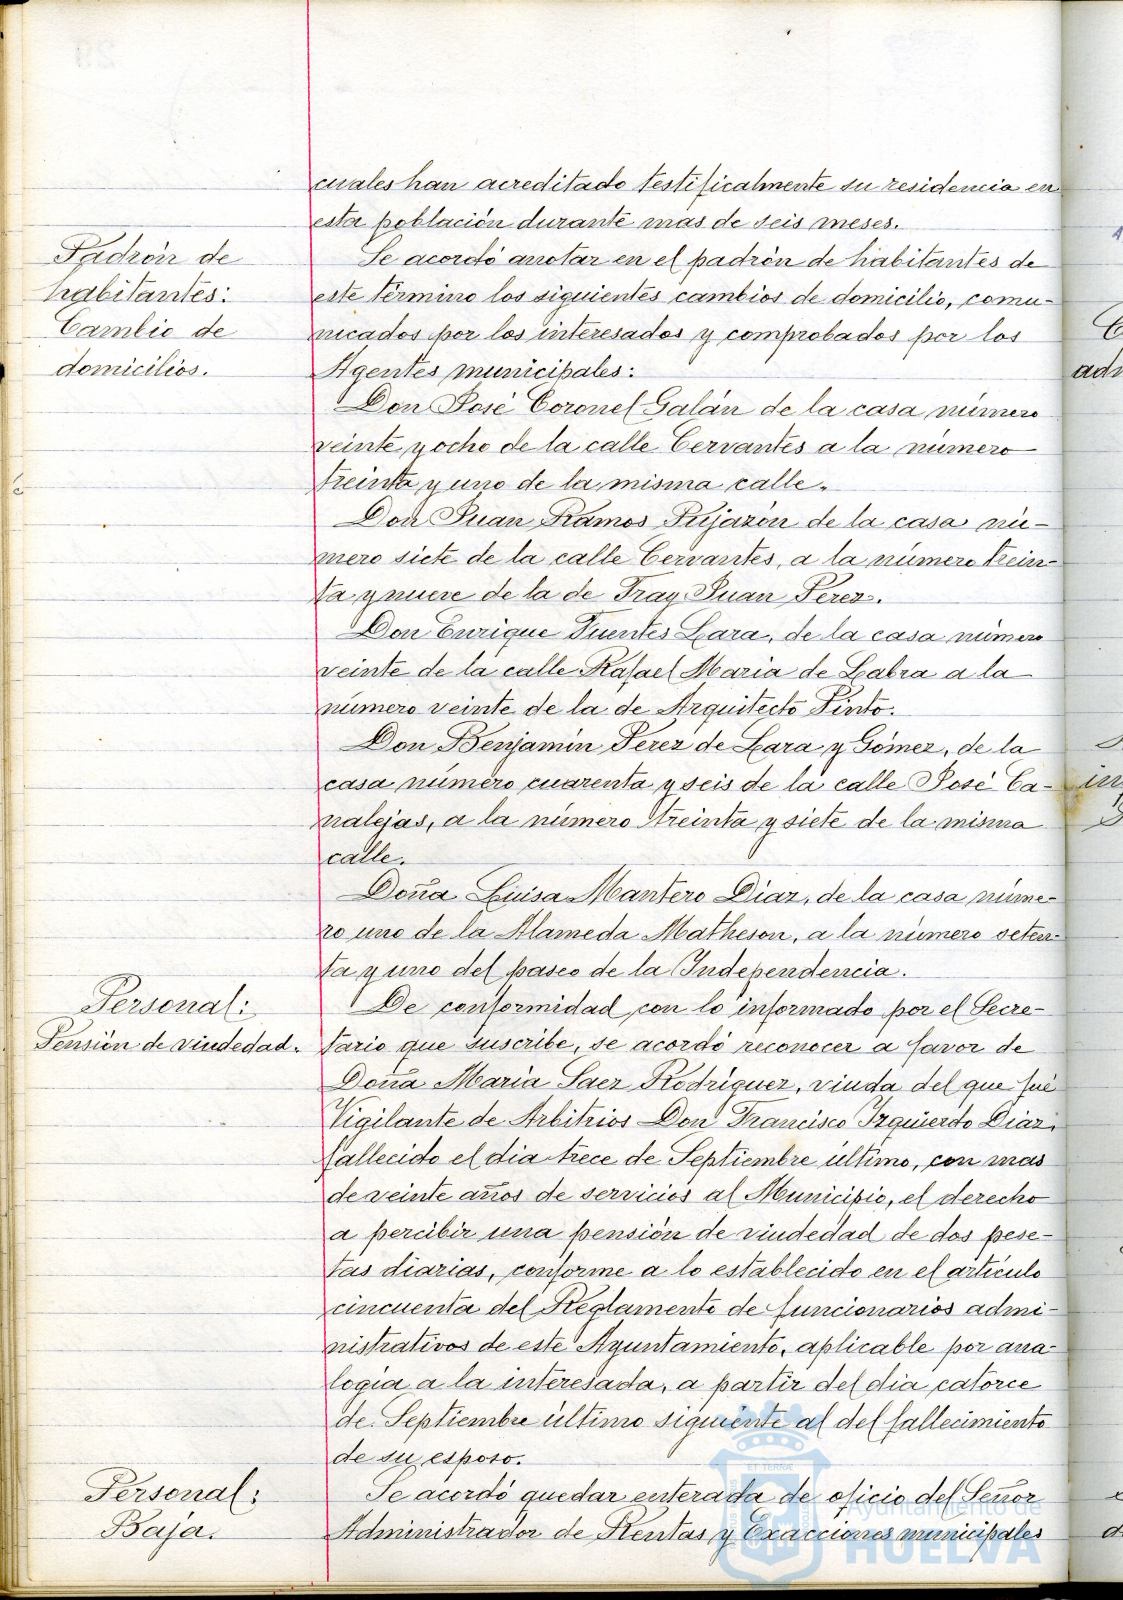 cuales han acreditado testificalmente su residencia en
esta población durante mas de seis meses.
Padrón de
habitantes:
Cambio de
domicilios.
Se acordó anotar en el padrón de habitantes de
este término los siguientes cambios de domicilio, comu-
nicados por los interesados y comprobados por los
Agentes municipales:
Don José Coronel Galán de la casa número
veinte y ocho de la calle Cervantes a la número
treinta y uno de la misma calle.
Don Juan Ramos Pujazón de la casa nú-
mero siete de la calle Cervantes, a la número trein-
ta y nueve de la de Fray Juan Perez.
Don Enrique Fuentes Lara, de la casa número
veinte de la calle Rafael Maria de Labra a la
número veinte de la de Arquitecto Pinto.
Don Benjamín Perez de Lara y Gómez, de la
casa número cuarenta y seis de la calle José Ca-
nalejas, a la número treinta y siete de la misma
calle.
Doña Luisa Mantero Diaz, de la casa núme-
ro uno de la Alameda Matheson, a la número seten-
ta y uno del paseo de la Independencia.
Personal:
Pensión de viudedad.
De conformidad con lo informado por el Secre-
tario que suscribe, se acordó reconocer a favor de
Doña Maria Saez Rodríguez, viuda del que fué
Vigilante de Arbitrios Don Francisco Izquierdo Diaz,
fallecido el dia trece de Septiembre último, con mas
de veinte años de servicios al Municipio, el derecho
a percibir una pensión de viudedad de dos pese-
tas diarias, conforme a lo establecido en el artículo
cincuenta del Reglamento de funcionarios admi-
nistrativos de este Ayuntamiento, aplicable por ana-
logia a la interesada, a partir del dia catorce
de Septiembre último siguiente al del fallecimiento
de su esposo.
Personal:
Baja.
Se acordó quedar enterada de oficio del Señor
Administrador de Rentas y Exacciones municipales
Ayuntamiento de
HUELVA